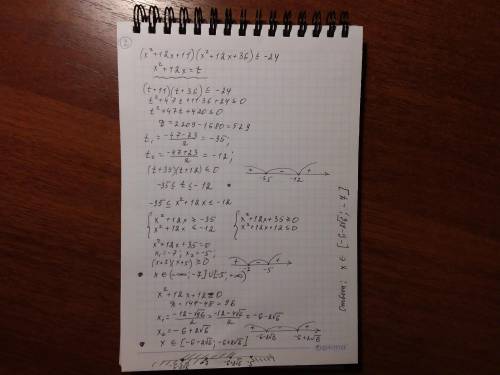 2
(x²+12x+11)(x²+12x+36) ≤ -24
x²+12x = t
(t+11)(t+36) ≤ -24
t²+47t+11·36+24 ≤ 0
t²+47t+420 ≤ 0
D = 2209-1680 = 529
t₁ = (-47-23)/2 = -35;
t₂ = (-47+23)/2 = -12;
(t+35)(t+12) ≤ 0
+ - +
-35 -12
-35 ≤ t ≤ -12
-35 ≤ x²+12x ≤ -12
{ x²+12x ≥ -35 { x²+12x+35 ≥ 0
{ x²+12x ≤ -12 { x²+12x+12 ≤ 0
x²+12x+35 = 0
x₁ = -7; x₂ = -5;
(x+7)(x+5) ≥ 0
+ - +
-7 -5
x ∈ (-∞; -7] ∪ [-5; +∞)
x²+12x+12 = 0
D = 144-48 = 96
x₁ = (-12-√96)/2 = (-12-4√6)/2 = -6-2√6
x₂ = -6+2√6
+ - +
-6-2√6 -6+2√6
x ∈ [-6-2√6; -6+2√6]
Ответ: x ∈ [-6-2√6; -7]